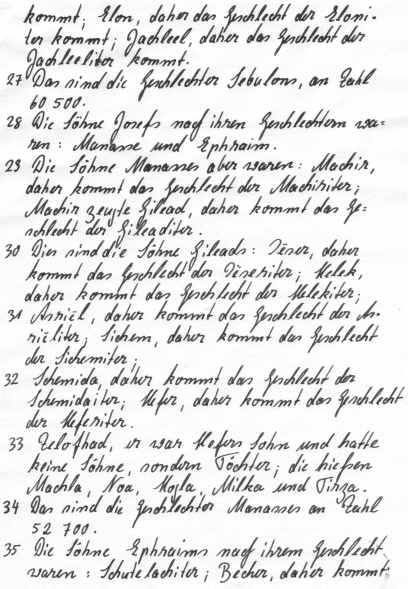 kommt; Elon, daher das Geschlecht der Eloni-
ter kommt; Jachleel, daher das Geschlecht der
Jachleeliter kommt.
27 Das sind die Geschlechter Sebulons, an Zahl
60 500.
28 Die Söhne Josefs nach ihren Geschlechtern wa-
ren: Manasse und Ephraim.
29 Die Söhne Manasses aber waren: Machir,
daher kommt das Geschlecht der Machiriter;
Machir zeugte Gilead, daher kommt das Ge-
schlecht der Gileaditer.
30 Dies sind die Söhne Gileads: Iëser, daher
kommt das Geschlecht der Iëseriter; Helek,
daher kommt das Geschlecht der Helekiter;
31 Asriël, daher kommt das Geschlecht der As-
riëliter; Sichem, daher kommt das Geschlecht
der Sichemiter;
32 Schemida, daher kommt das Geschlecht der
Schemidaiter; Hefer, daher kommt das Geschlecht
der Heferiter.
33 Zelofhad, er war Hefers Sohn und hatte
keine Söhne, sondern Töchter; die hießen
Machla, Noa, Hogla, Milka und Tirza.
34 Das sind die Geschlechter Manasses an Zahl
52 700.
35 Die Söhne Ephraims nach ihrem Geschlecht
waren: Schutelachiter; Becher, daher kommt